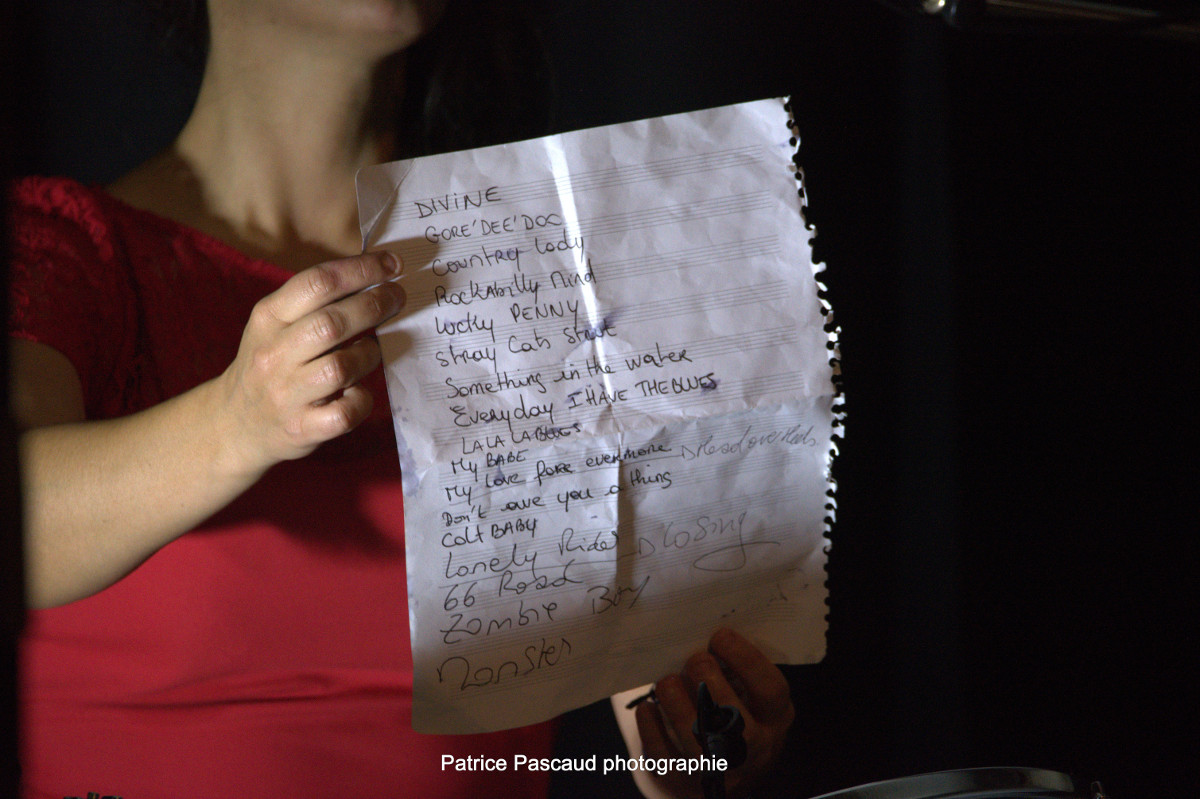 DIVINE
GORE'DEE'DOC
COUNTRY Lady
ROCKAbilly Mind
lucky PENNY
Stray Cats Strut
Something in the water
Everyday I HAVE THE BLUES
LA LA LA BLUES
My BABE
My Love fore evermore
Don't owe you a thing
Colt BABY
Lonely Rider Losing
66 Road
Zombie Boy
Monster
Patrice Pascaud photographie